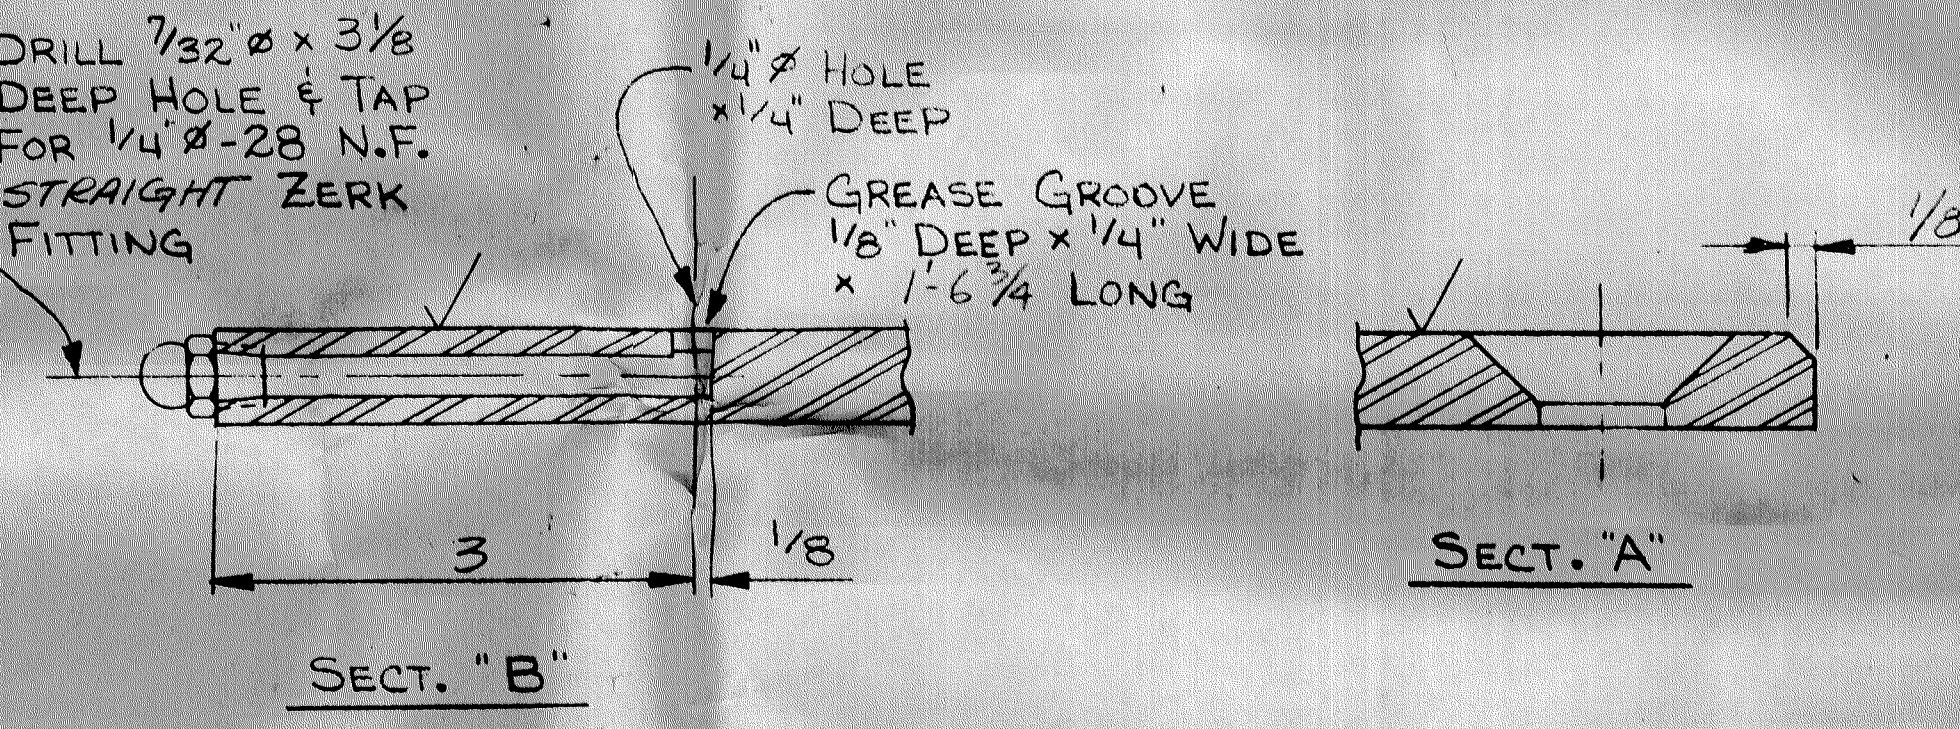 DRILL 7/32"ø x 3 1/8
DEEP HOLE & TAP
FOR 1/4"ø-28 N.F.
STRAIGHT ZERK
FITTING
1/4"ø HOLE
x 1/4" DEEP
GREASE GROOVE
1/8" DEEP x 1/4" WIDE
x 1'-6 3/4 LONG
1/8
3
1/8
SECT. "B"
SECT. "A"